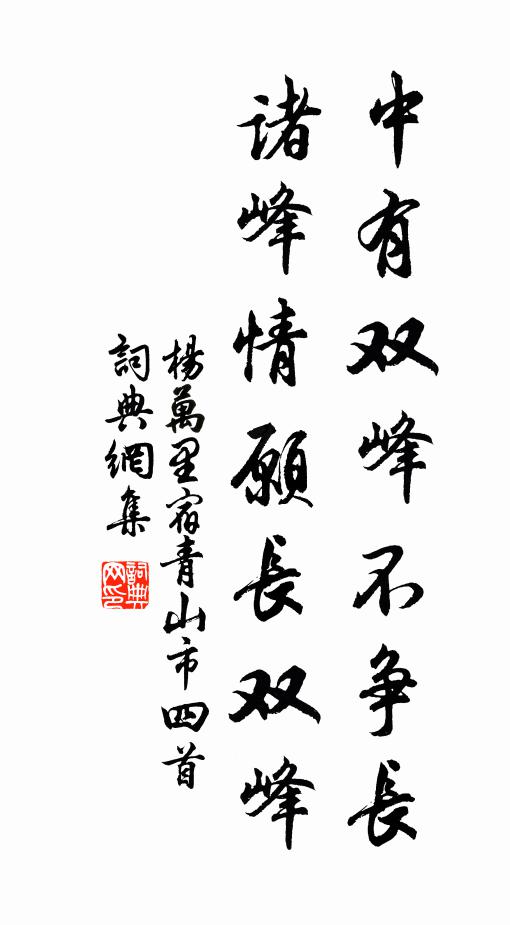 中有双峰不争長
诸峰情願長双峰
楊萬里宿青山市四首
詞典網集
詞典网印